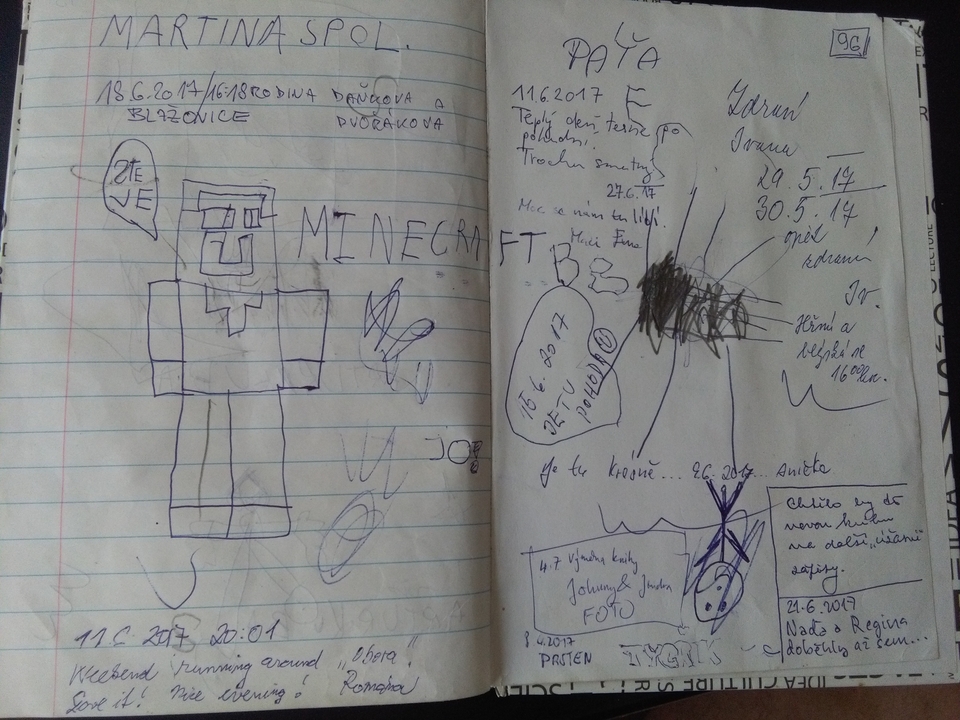 MARTINA SPOL.
18.6.2017/16:18 RODINA DAŇKOVA A
BLAŽOVICE DVOŘÁKOVA
MINECRAFT
JOE
11.6. 2017 20:01
Weekend running around "Obora"!
Love it! Nice evening! Romana
PAŤA
96
11.6.2017
Teplý den, teče
Trochu smutný
27.6.17
Moc se nám tu líbí.
E
po
Zdraví
Ivana
29.5.17
30.5.17
opět
zdraví
Iv.
Hřmí a
blýská se
16 00
B
16.6.2017
JE TU
POHODA
Je tu krásně... 9.6.2017... Anička
Chtělo by to
novou knihu
na další „úžasné
zápisy.
4.7 Výměna knihy
Johnny & Jindra
FOTO
21.6.2017
Naďa a Regina
doběhly až sem...
4.2017
PRSTEN
TYGRIK